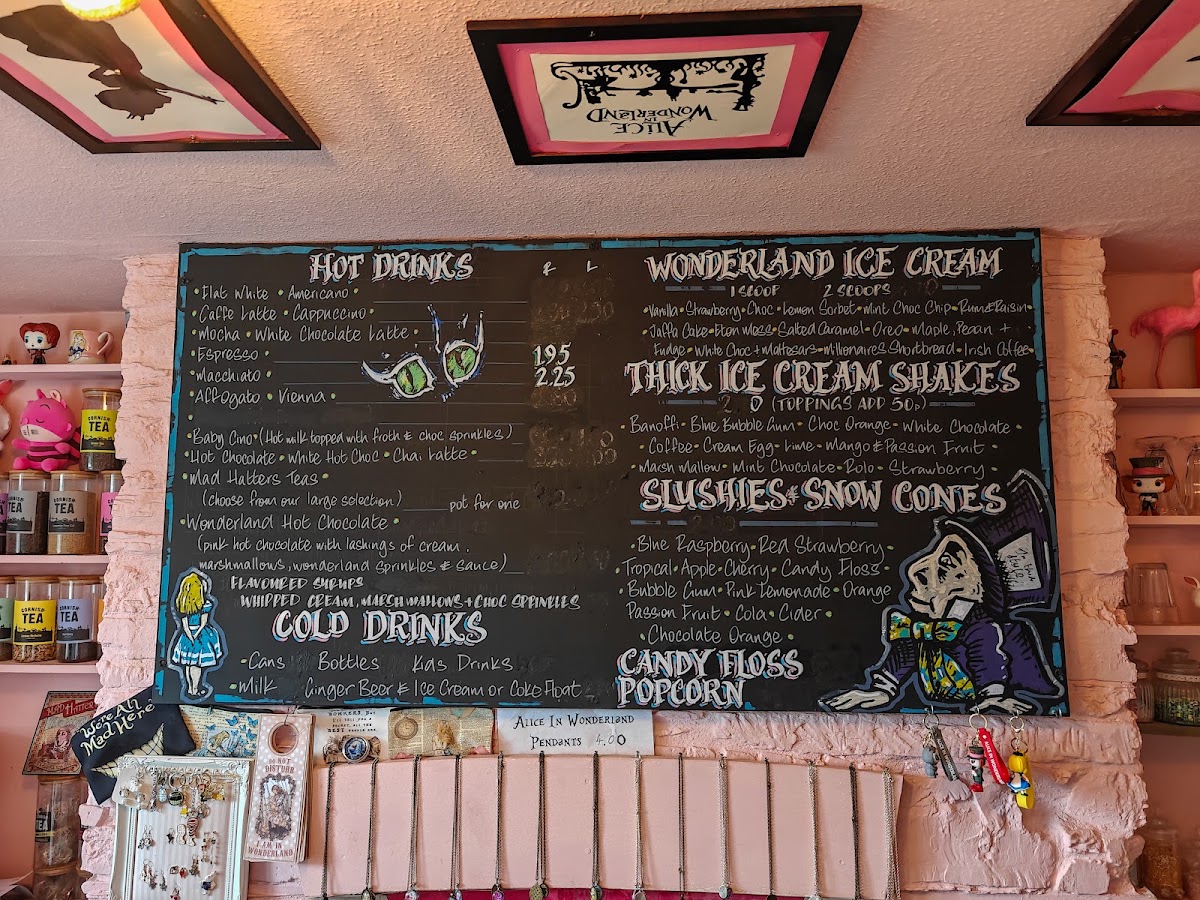 ALICE
IN
WONDERLAND
HOT DRINKS
• Flat White • Americano •
• Caffe Latte • Cappuccino •
• Mocha • White Chocolate Latte •
• Espresso • 1.95
• Macchiato • 2.25
• Affogato • Vienna •
• Baby Cino • (Hot milk topped with froth & choc sprinkles)
• Hot Chocolate • White Hot Choc • Chai Latte •
• Mad Hatters Teas •
(choose from our large selection) pot for one
• Wonderland Hot Chocolate •
(pink hot chocolate with lashings of cream,
marshmallows, wonderland sprinkles & sauce)
FLAVOURED SYRUPS
WHIPPED CREAM, MARSHMALLOWS + CHOC SPRINKLES
COLD DRINKS
• Cans Bottles Kids Drinks
• Milk Ginger Beer & Ice Cream or Coke Float
WONDERLAND ICE CREAM
1 SCOOP 2 SCOOPS
Vanilla • Strawberry • Choc • Lemon Sorbet • Mint Choc Chip • Rum & Raisin •
Jaffa Cake • Eton Mess • Salted Caramel • Oreo • Maple, Pecan +
Fudge • White Choc + Maltesars • Millionaires Shortbread • Irish Coffee •
THICK ICE CREAM SHAKES
(TOPPINGS ADD 50p)
• Banoffi • Blue Bubble Gum • Choc Orange • White Chocolate •
Coffee • Cream Egg • Lime • Mango & Passion Fruit
Marsh Mallow • Mint Chocolate • Rolo • Strawberry •
SLUSHIES & SNOW CONES
• Blue Raspberry • Red Strawberry •
• Tropical • Apple • Cherry • Candy Floss •
• Bubble Gum • Pink Lemonade • Orange
Passion Fruit • Cola • Cider •
• Chocolate Orange •
CANDY FLOSS
POPCORN
CORNISH
TEA
CORNISH
TEA
CORNISH
TEA
CORNISH
TEA
CORNISH
TEA
MAD HATTER
We're All
Mad Here
DO NOT
DISTURB
I AM IN
WONDERLAND
ALICE IN WONDERLAND
PENDANTS 4.00